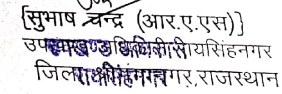 {सुभाष चन्द्र (आर.ए.एस)}
उपखण्ड अधिकारी रायसिंहनगर
जिला श्रीगंगानगर, राजस्थान